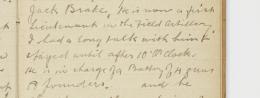 Jack Brake. He is now a first
lieutenant in the Field Artillery.
I had a long talk with him &
stayed until after 10 o'clock.
He is in charge of a Battery of 4 guns
18 pounders, and he